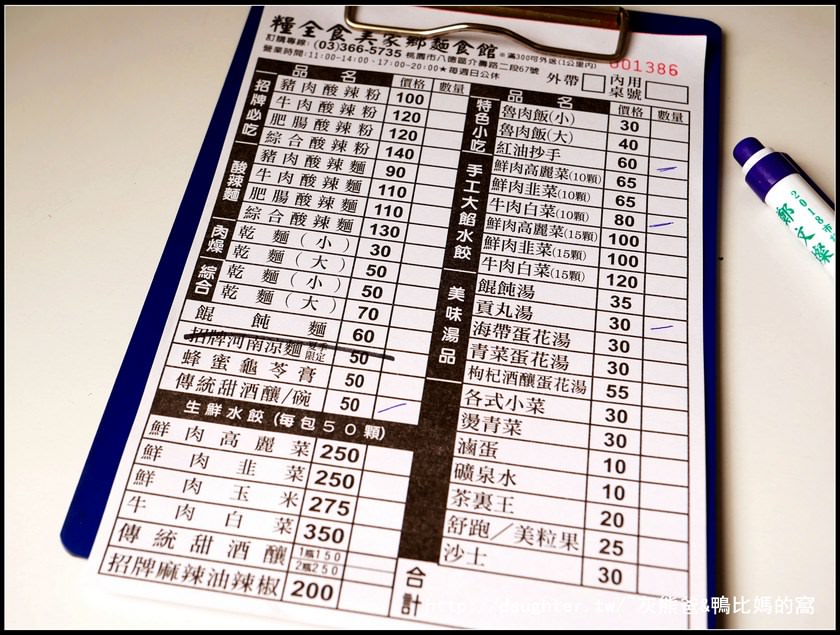 糧全食美家鄉麵食館
訂購專線: (03)366-5735 桃園市八德區介壽路二段67號
※滿300可外送(1公里內)
營業時間:11:00-14:00、17:00-20:00★每週日公休
001386
外帶 內用桌號
品名 價格 數量
招牌必吃
豬肉酸辣粉 100
牛肉酸辣粉 120
肥腸酸辣粉 120
綜合酸辣粉 140
酸辣麵
豬肉酸辣麵 90
牛肉酸辣麵 110
肥腸酸辣麵 110
綜合酸辣麵 130
肉燥
乾麵(小) 30
乾麵(大) 50
綜合
乾麵(小) 50
乾麵(大) 70
餛飩麵 60
招牌河南涼麵 夏季限定 50
蜂蜜龜苓膏 50
傳統甜酒釀/碗 50
生鮮水餃(每包50顆)
鮮肉高麗菜 250
鮮肉韭菜 250
鮮肉玉米 275
牛肉白菜 350
傳統甜酒釀 1瓶150 2瓶250
招牌麻辣油辣椒 200
品名 價格 數量
特色小吃
魯肉飯(小) 30
魯肉飯(大) 40
紅油抄手 60
手工大餡水餃
鮮肉高麗菜(10顆) 65
鮮肉韭菜(10顆) 65
牛肉白菜(10顆) 80
鮮肉高麗菜(15顆) 100
鮮肉韭菜(15顆) 100
牛肉白菜(15顆) 120
美味湯品
餛飩湯 35
貢丸湯 30
海帶蛋花湯 30
青菜蛋花湯 30
枸杞酒釀蛋花湯 55
各式小菜 30
燙青菜 30
滷蛋 10
礦泉水 10
茶裏王 20
舒跑/美粒果 25
沙士 30
合計
2018
鄭文燦
http://daughter.tw/ 灰熊爸&鴨比媽的窩